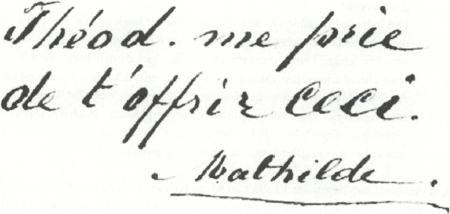 Théod. me prie
de t'offrir ceci.
Mathilde.